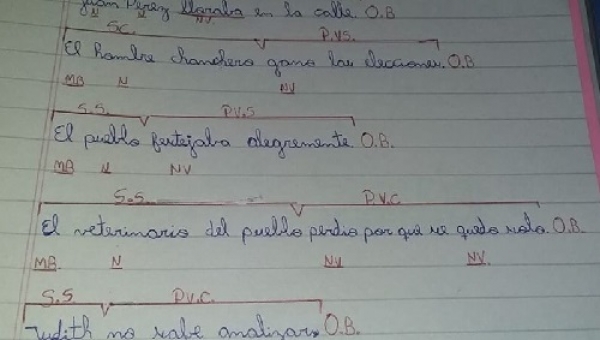 Juan Pérez lloraba en la calle. O.B
N N NV
S.C. P.V.S.
El hombre chanchero gano las elecciones. O.B
MB N NV
S.S. P.V.S
El pueblo festejaba alegremente O.B.
MB N NV
S.S. P.V.C
El veterinario del pueblo perdio por que se quedo solo. O.B.
MB. N NV NV.
S.S P.V.C.
Judith no sabe analizar. O.B.